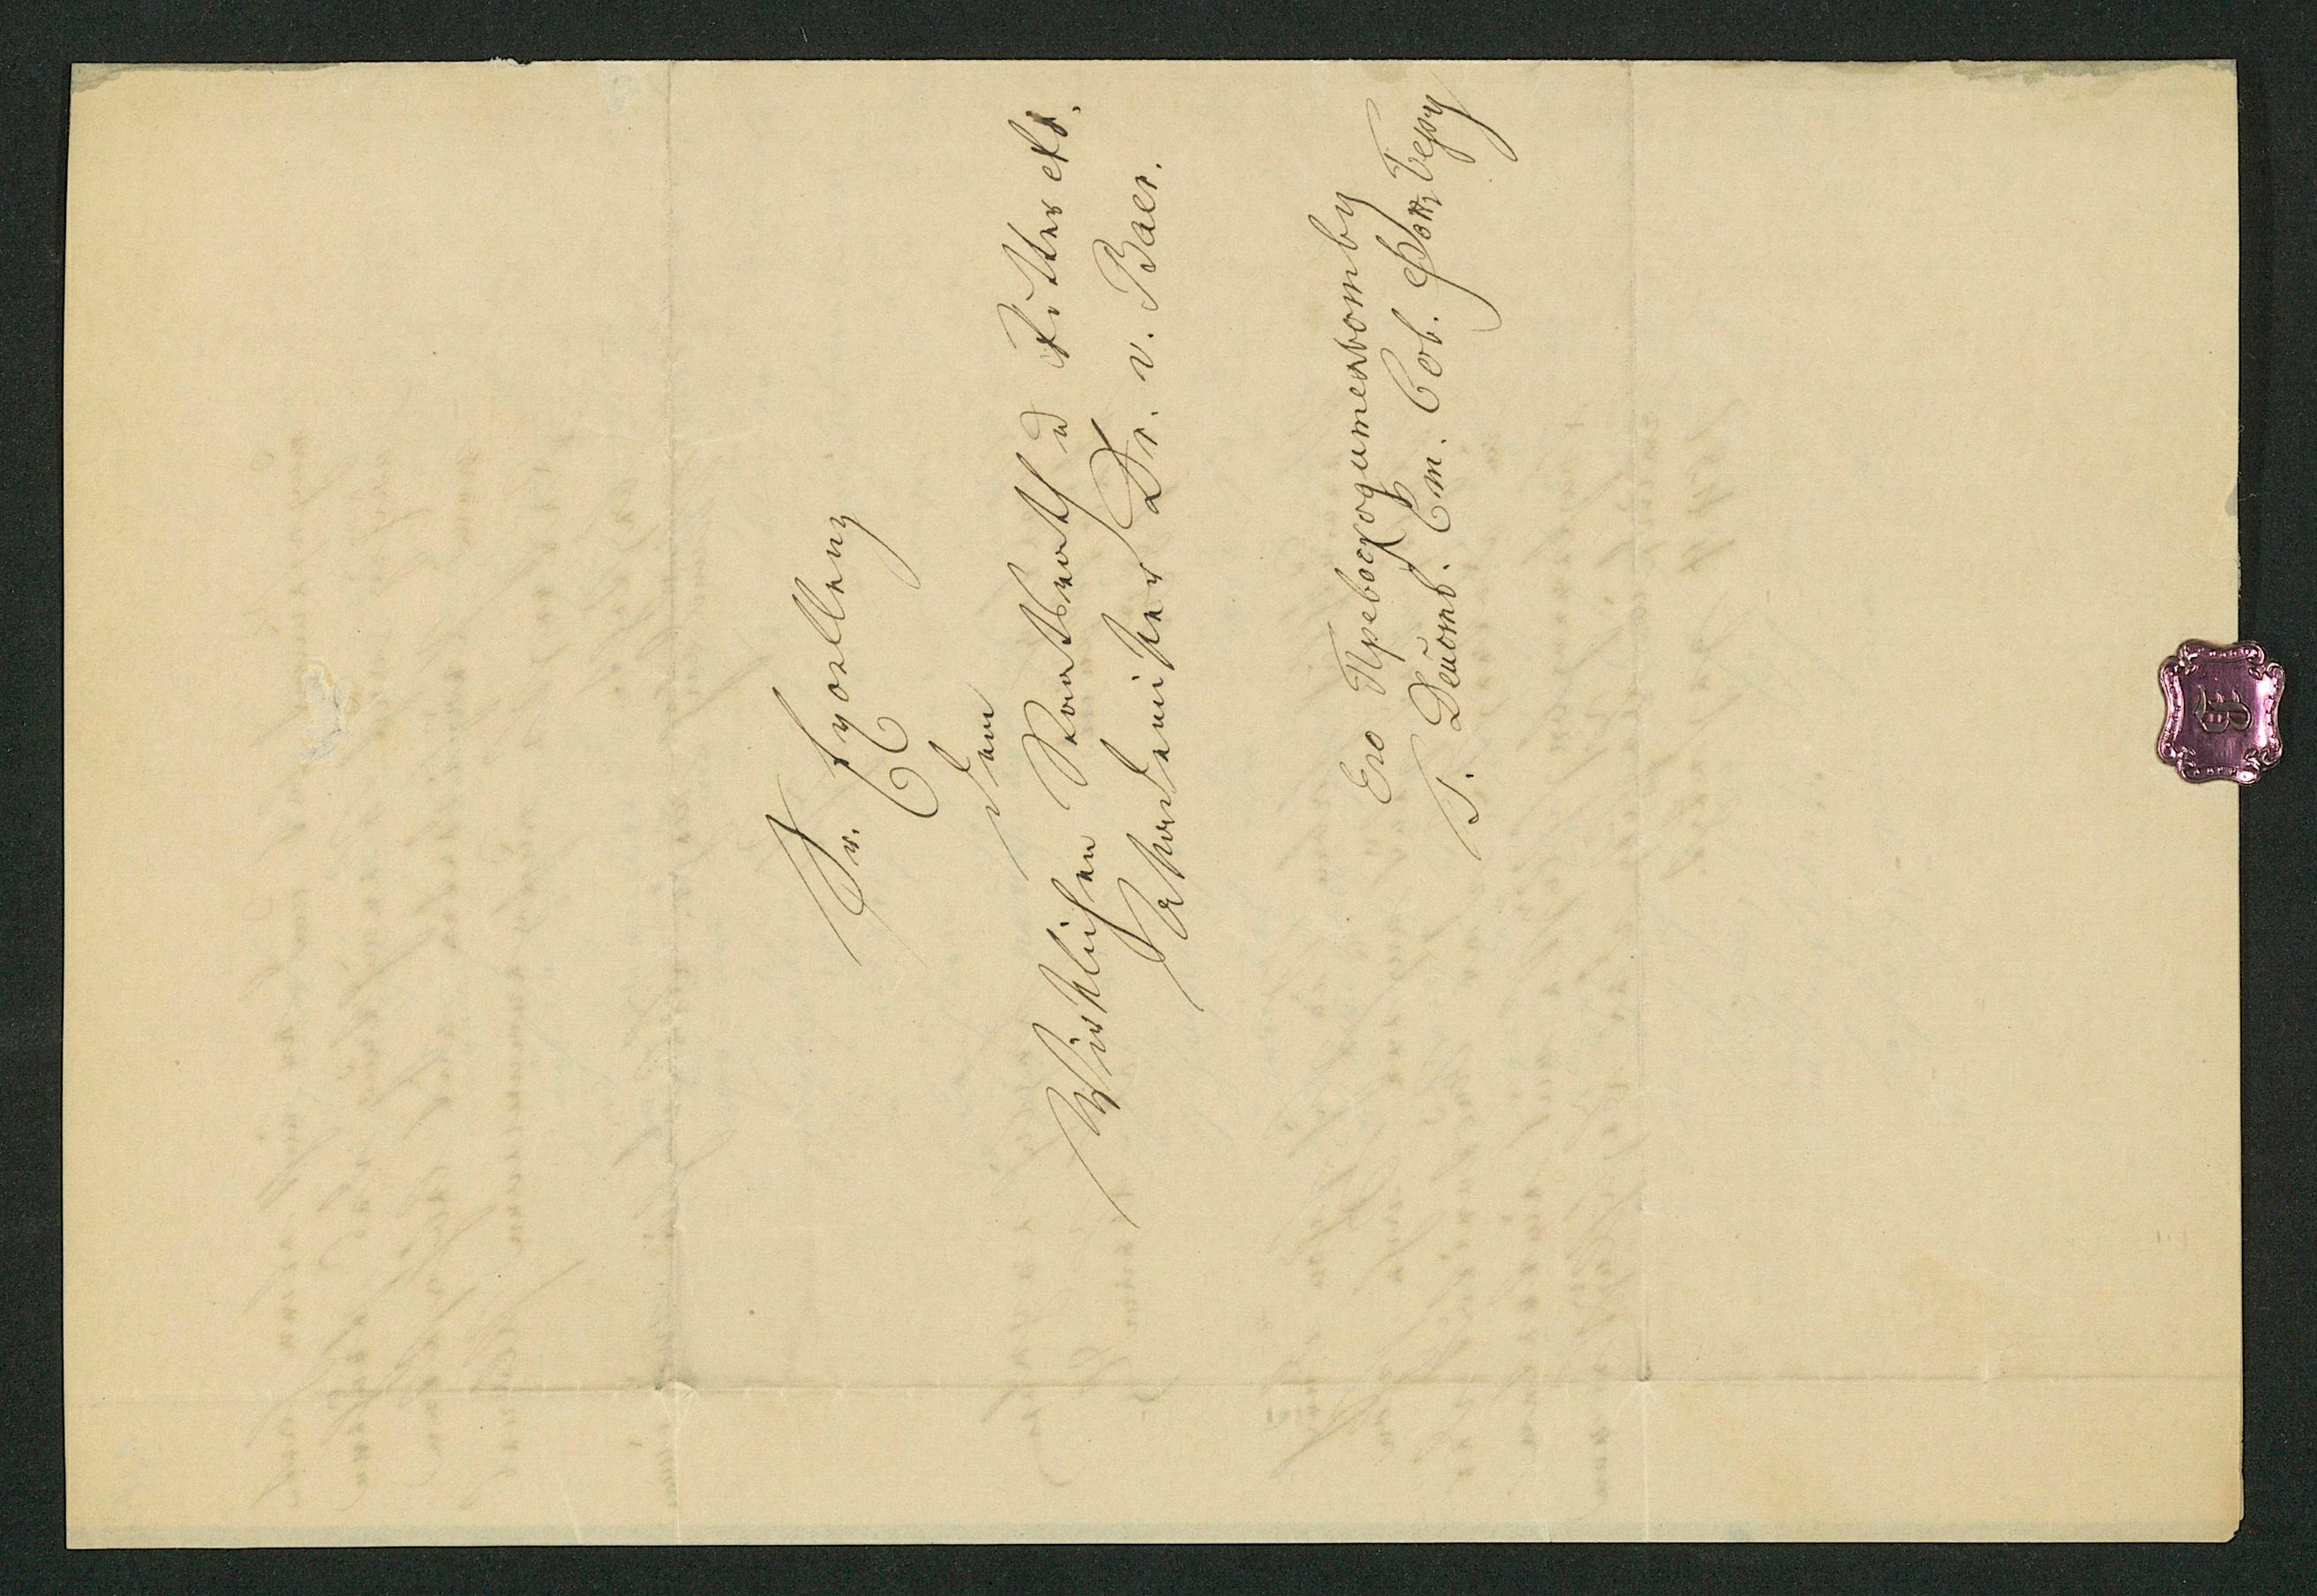 Sr. Excellenz
dem
Wirklichen Staatsrath u Ritter etc.
Akademiker Dr. v. Baer.
Его Превосходительству
Г. Дейст. Ст. Сов. Фон Беру